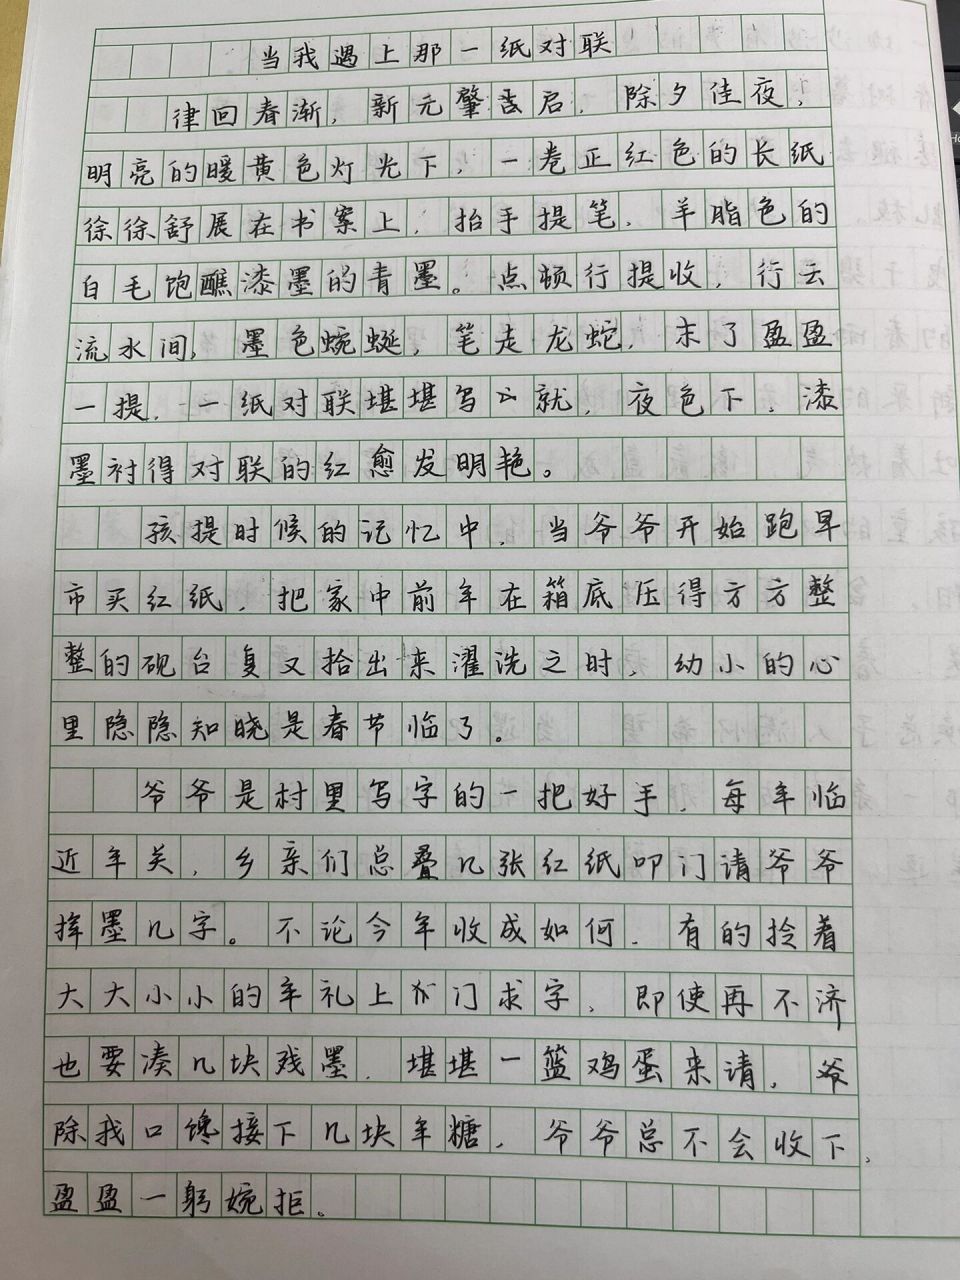 当我遇上那一纸对联
律回春渐，新元肇启，除夕佳夜，
明亮的暖黄色灯光下，一卷正红色的长纸
徐徐舒展在书案上，抬手提笔，羊脂色的
白毛饱蘸漆墨的青墨。点顿行提收，行云
流水间，墨色蜿蜒，笔走龙蛇，末了盈盈
一提，一纸对联堪堪写就，夜色下，漆
墨衬得对联的红愈发明艳。
孩提时候的记忆中，当爷爷开始跑早
市买红纸，把家中前年在箱底压得方方整
整的砚台复又拾出来濯洗之时，幼小的心
里隐隐知晓是春节临了。
爷爷是村里写字的一把好手，每年临
近年关，乡亲们总叠几张红纸叩门请爷爷
挥墨几字。不论今年收成如何，有的拎着
大大小小的年礼上门求字，即使再不济
也要凑几块残墨，堪堪一篮鸡蛋来请，
除我口馋接下几块年糖，爷爷总不会收下，
盈盈一躬婉拒。